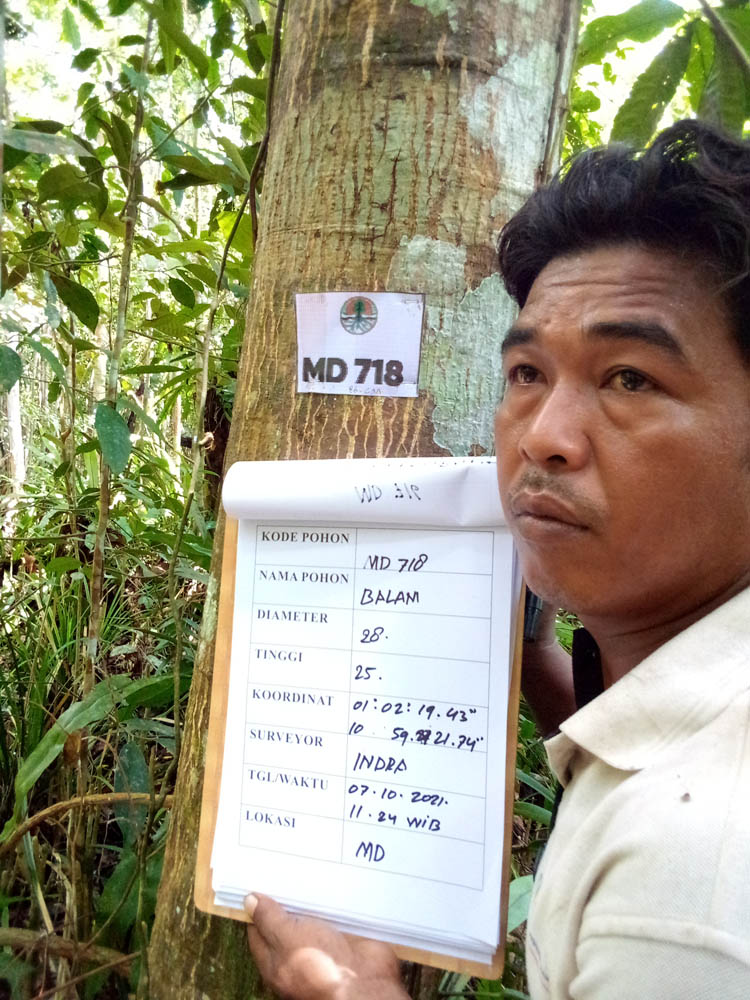 MD 718
KODE POHON MD 718
NAMA POHON BALAM
DIAMETER 28.
TINGGI 25.
KOORDINAT 01:02:19.43"
10 59. 21.74"
SURVEYOR INDRA
TGL/WAKTU 07.10.2021.
11.24 WIB
LOKASI MD